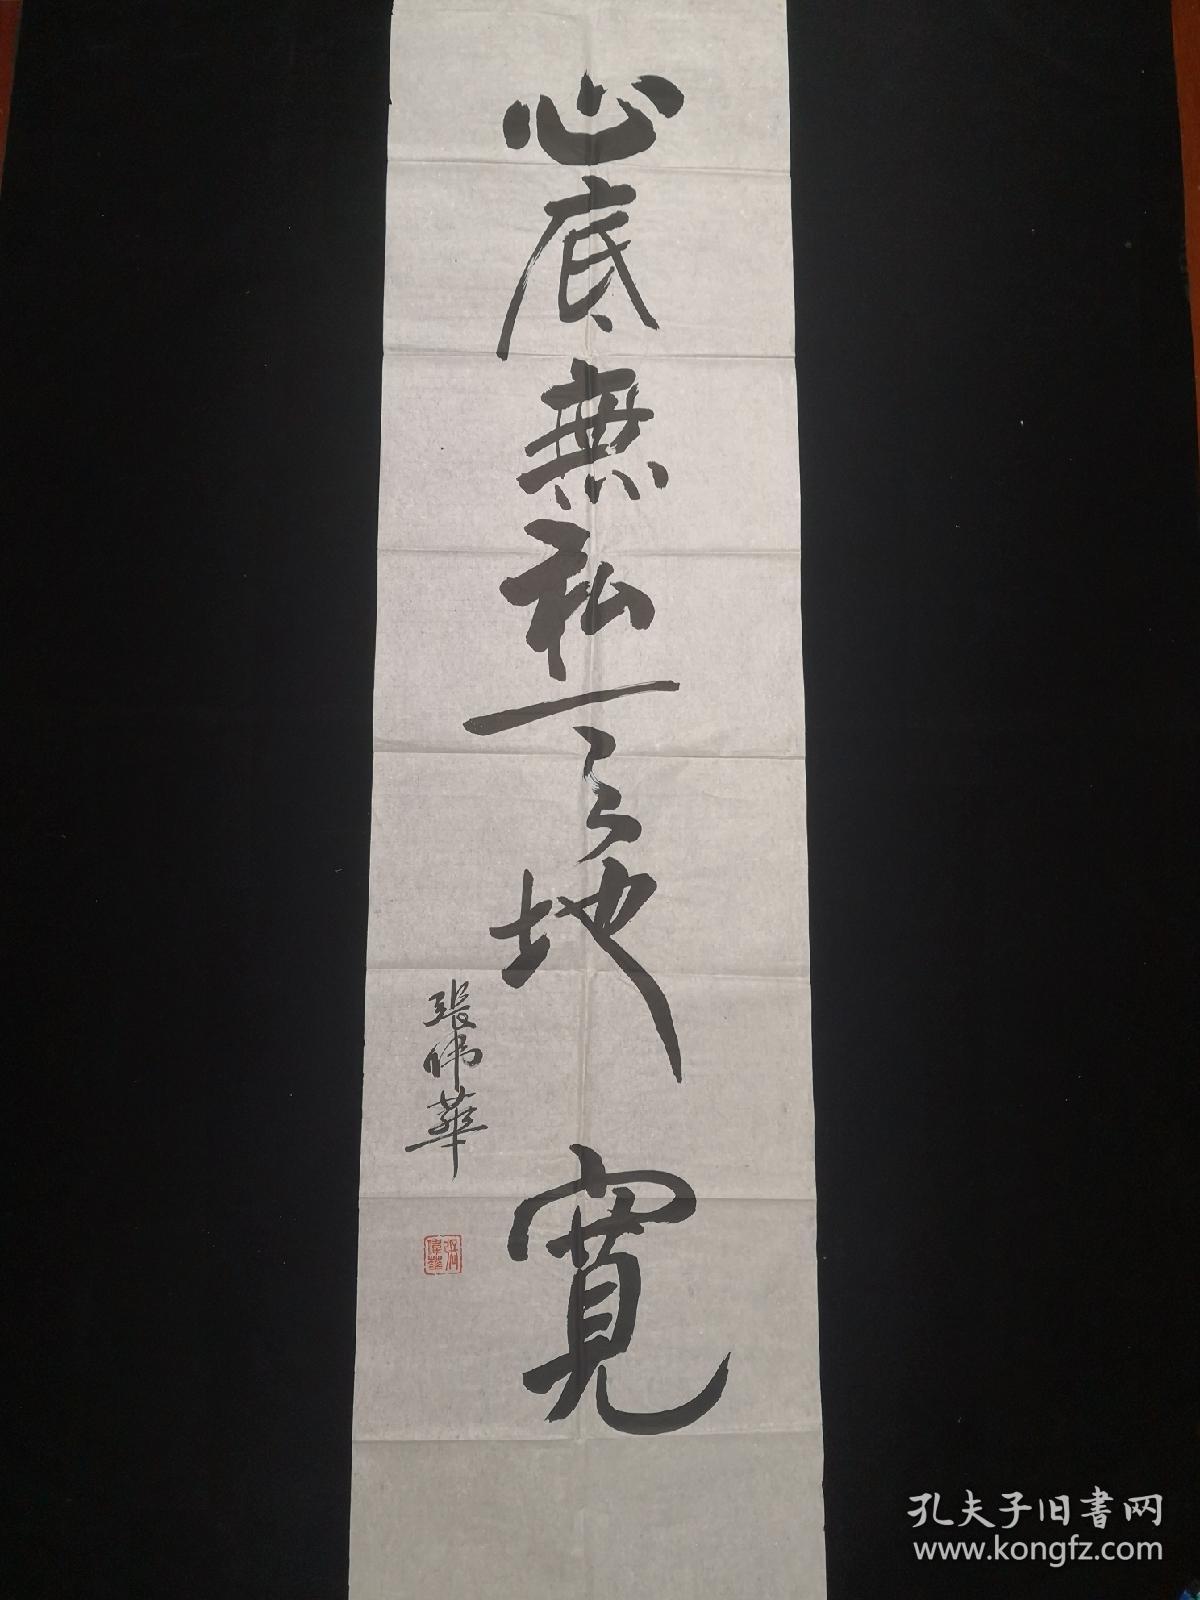 心底無私天地寬
張偉華
張偉華
孔夫子旧書网
www.kongfz.com